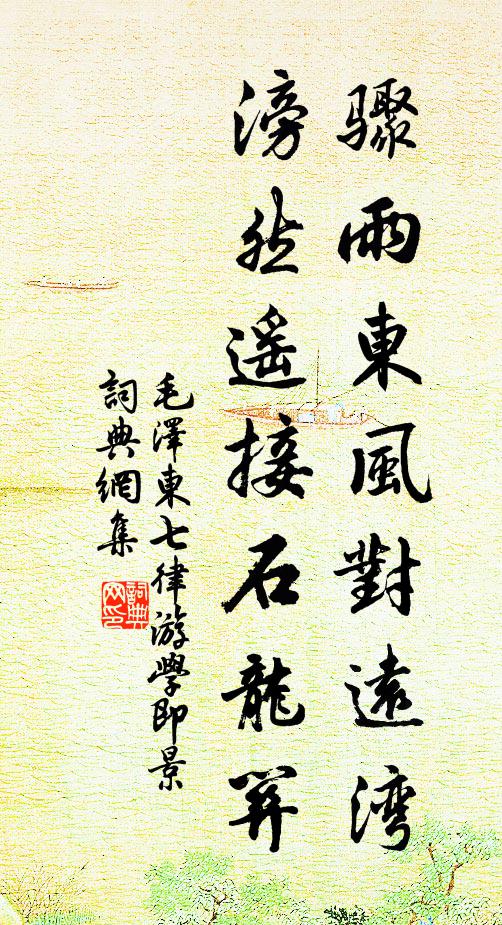 驟雨東風對遠灣
滂然遥接石龍關
毛澤東七律游學即景
詞典網集
詞典
网印